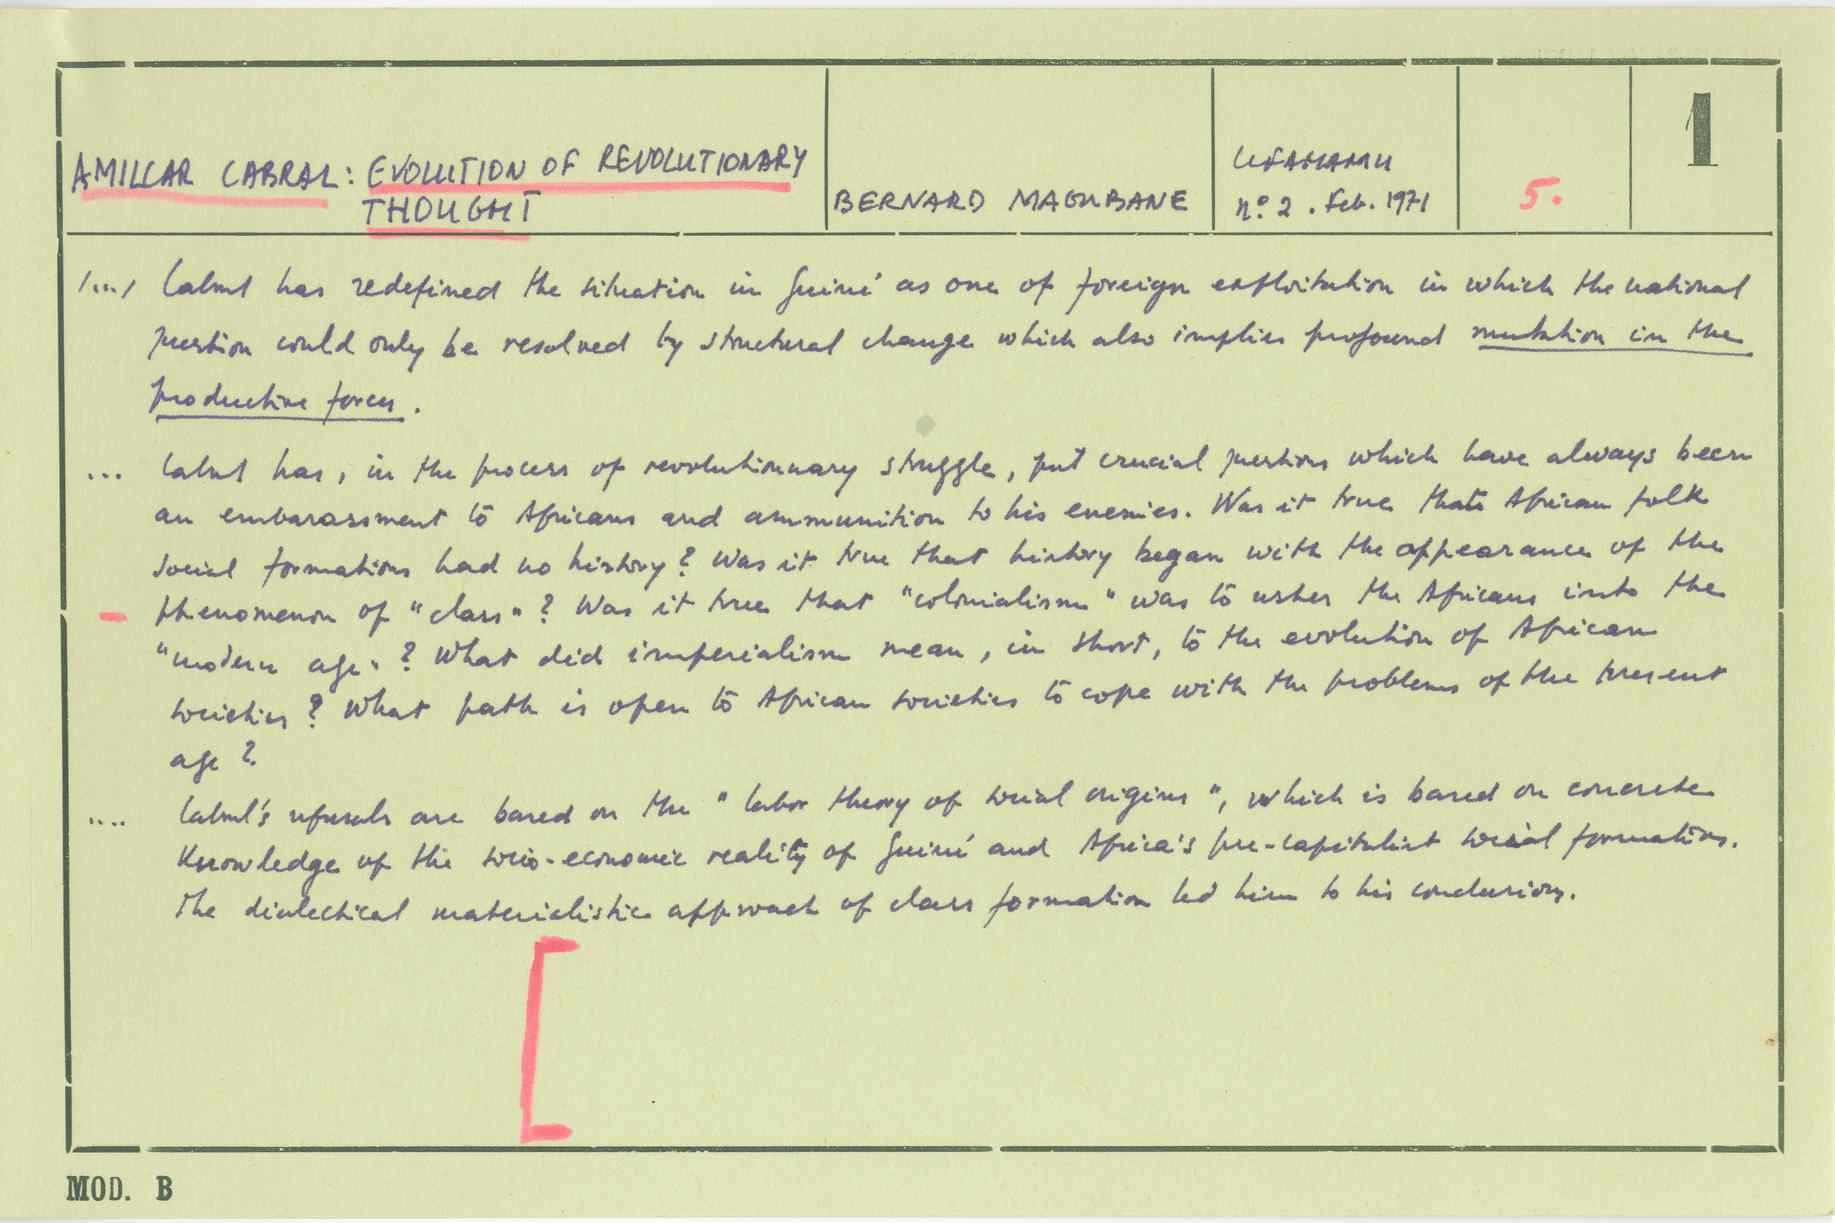 AMILCAR CABRAL: EVOLUTION OF REVOLUTIONARY
THOUGHT
BERNARD MAGUBANE
UFAHAMU
nº 2. Feb. 1971
5.
1
/.../ Cabral has redefined the situation in Guiné as one of foreign exploitation in which the national
question could only be resolved by structural change which also implies profound mutation in the
productive forces.
... Cabral has, in the process of revolutionnary struggle, put crucial questions which have always been
an embarassment to Africans and ammunition to his enemies. Was it true that African folk
social formations had no history? Was it true that history began with the appearance of the
- phenomenon of "class"? Was it true that "colonialism" was to usher the Africans into the
"modern age"? What did imperialism mean, in short, to the evolution of African
societies? What path is open to African societies to cope with the problems of the present
age?
.... Cabral's refusals are based on the "labor theory of social origins", which is based on concrete
knowledge of the socio-economic reality of Guiné and Africa's pre-capitalist social formations.
The dialectical materialistic approach of class formation led him to his conclusions.
MOD. B